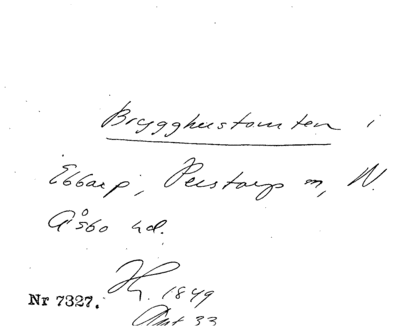 Brygghustomten i
Ebbarp, Perstorps sn, N.
Åsbo hd.
Nr 7327.
1849
33